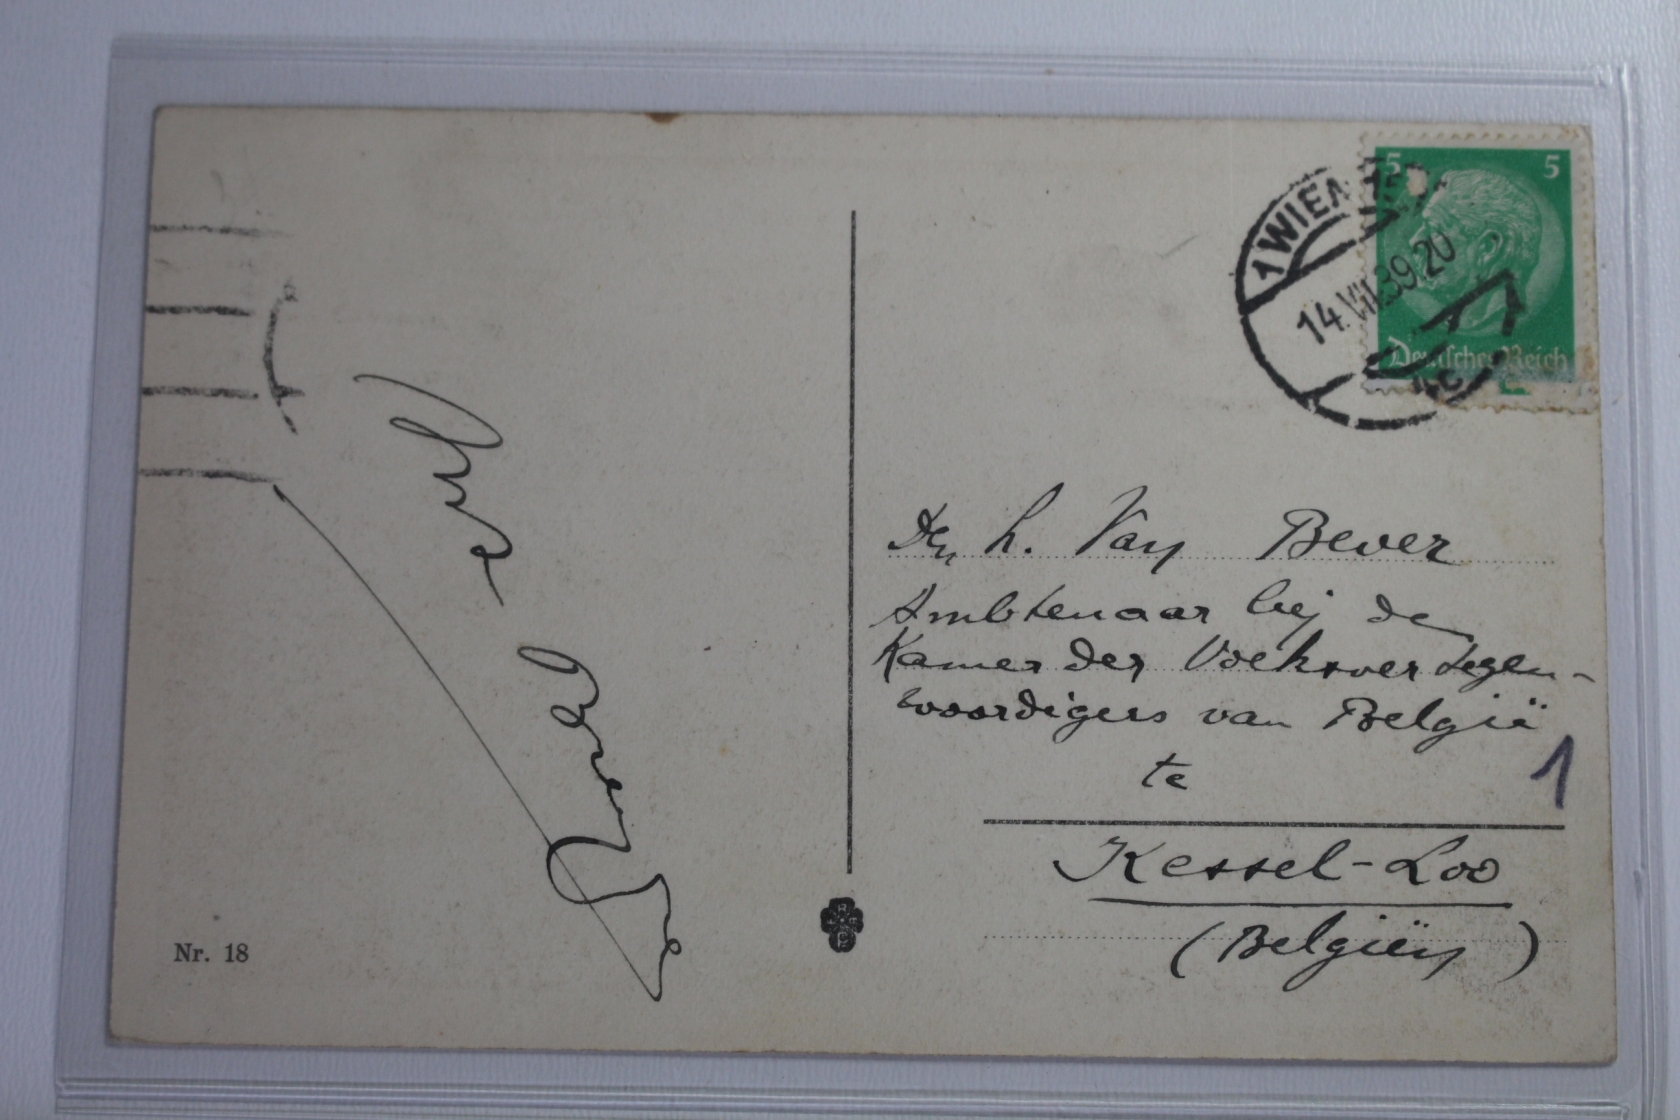 5 5
1 WIEN
14.VII.39.20
Deutsches Reich
4c
L. Van Bever
Ambtenaar bij de
Kamer der Volksvertegen-
woordigers van België
te
1
Kessel-Loo
(Belgien)
Nr. 18